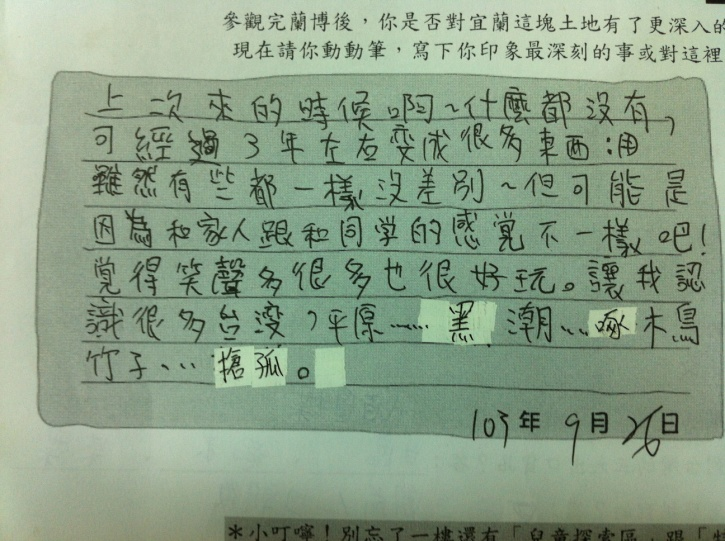 參觀完蘭博後，你是否對宜蘭這塊土地有了更深入的
現在請你動動筆，寫下你印象最深刻的事或對這裡
上次來的時候啊~什麼都沒有，
可經過3年左右變成很多東西
雖然有些都一樣沒差別~但可能是
因為和家人跟和同学的感覺不一樣吧!
覺得笑聲多很多也很好玩。讓我認
識很多台灣，平原……黑潮…啄木鳥
竹子…搶孤。
103年9月26日
＊小叮嚀！別忘了一樓還有「兒童探索區」跟「